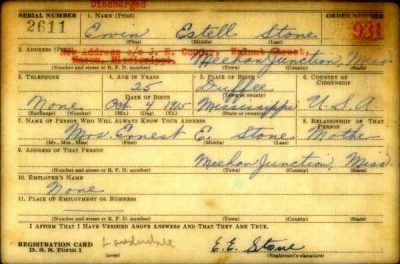 Discharged
SERIAL NUMBER 1. NAME (Print) ORDER NUMBER
2611 Ervin Estell Stone 931
(First) (Middle) (Last)
2. ADDRESS (Print)
Meehan Junction, Miss
(Number and street or R. F. D. number) (Town) (County) (State)
3. TELEPHONE 4. AGE IN YEARS 5. PLACE OF BIRTH 6. COUNTRY OF CITIZENSHIP
25 Duffee
DATE OF BIRTH (Town or county)
None Oct 4 1915 Mississippi U.S.A
(Exchange) (Number) (Mo.) (Day) (Yr.) (State or country)
7. NAME OF PERSON WHO WILL ALWAYS KNOW YOUR ADDRESS 8. RELATIONSHIP OF THAT PERSON
Mrs. Ernest E. Stone Mother
(Mr., Mrs., Miss) (First) (Middle) (Last)
9. ADDRESS OF THAT PERSON
Meehan Junction, Miss
(Number and street or R. F. D. number) (Town) (County) (State)
10. EMPLOYER'S NAME
None
11. PLACE OF EMPLOYMENT OR BUSINESS
(Number and street or R. F. D. number) (Town) (County) (State)
I AFFIRM THAT I HAVE VERIFIED ABOVE ANSWERS AND THAT THEY ARE TRUE.
REGISTRATION CARD Lauderdale E.E. Stone
D. S. S. Form 1 (over) (Registrant's signature)